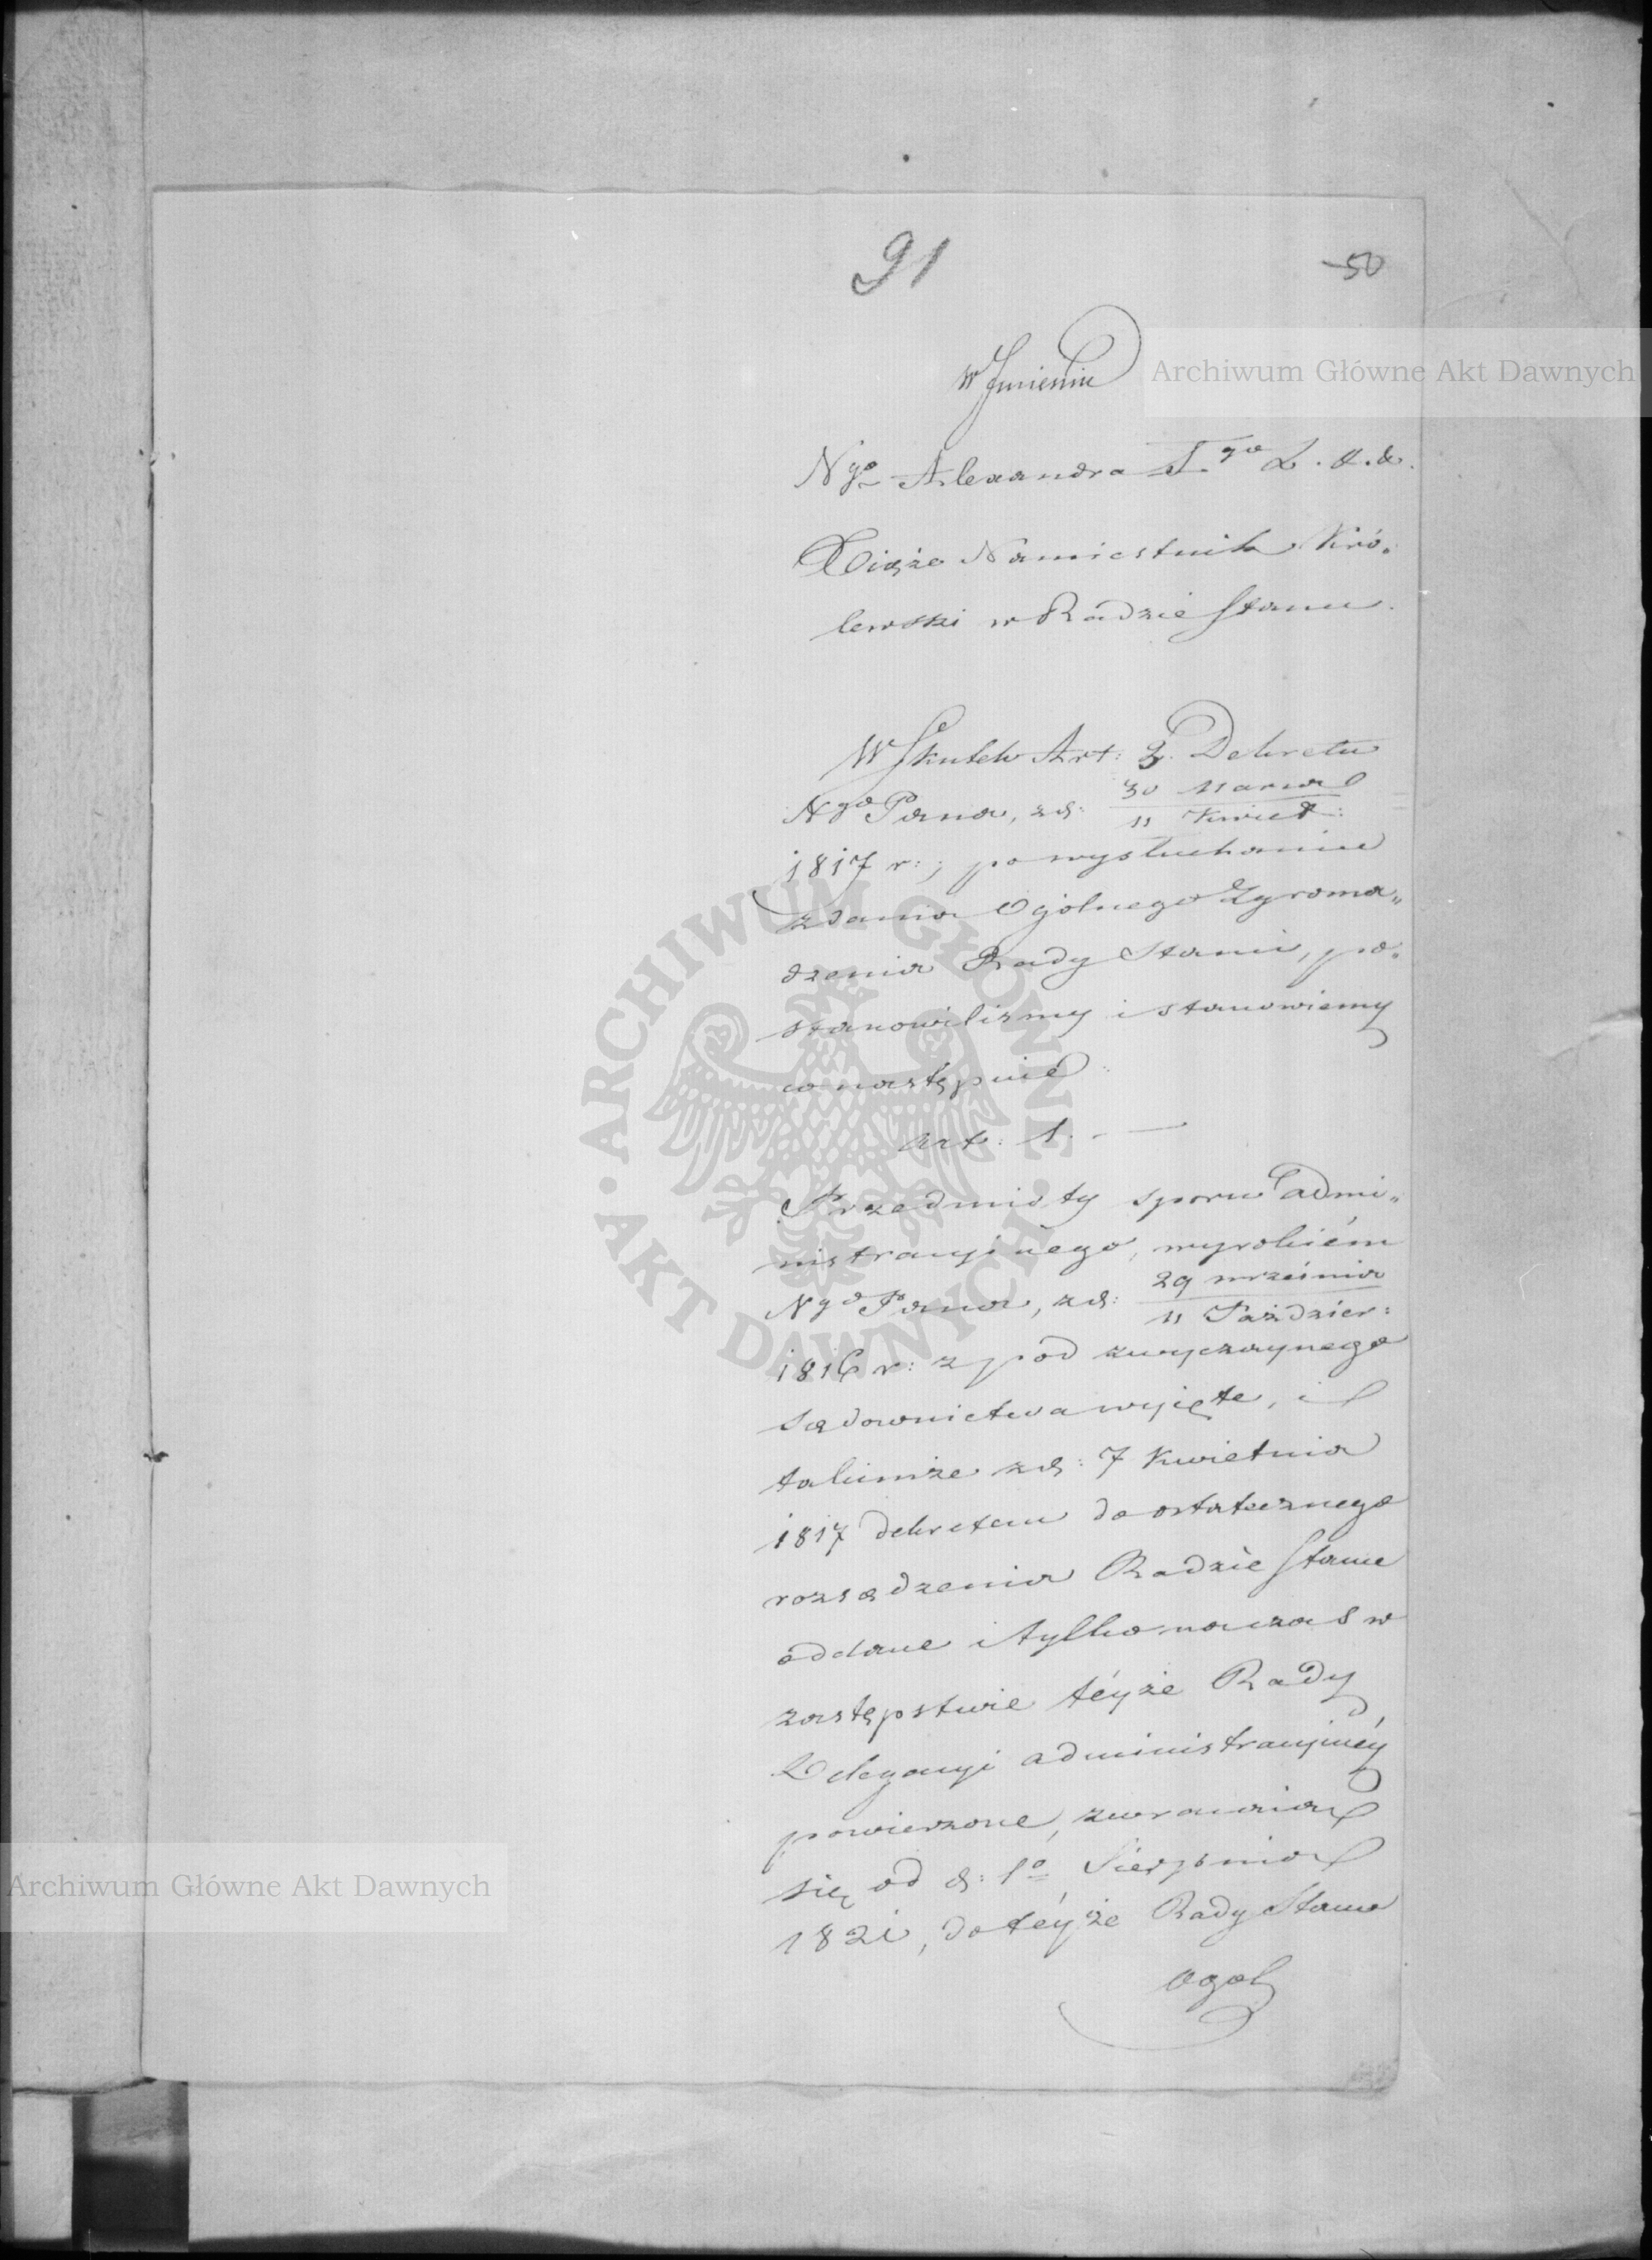 91
50
w Jmieniu
Archiwum Główne Akt Dawnych
Ngo Alexandra I. go &. &. &.
Xiąże Namiestnik Kró„
lewski w Radzie Stanu.
W Skutek Art: 3. Dekretu
Ngo Pana, z d: 30 Marca
11 Kwiet:
1817 r:, po wysłuchaniu
zdania Ogólnego Zgroma„
dzenia Rady Stanu, po„
stanowiliśmy i stanowiemy
co następuie
Art: 1. —
Przedmioty sporu admi„
nistracyinego, wyrokiém
Ngo Pana, z d: 29 września
11 Paździer:
1816 r: z pod zwyczaynego
sądownictwa wyięte, i
takimże z d: 7 Kwietnia
1817 dekretem do ostatecznego
rozsądzenia Radzie Stanu
oddane i tylko na czas w
zastępstwie téyże Rady
Delegacyi administracyinéy
powierzone, zwracaia
się od d: 1o Sierpnia
1821, do téyże Rady Stanu
Ogol
ARCHIWUM GŁÓWNE · AKT DAWNYCH ·
Archiwum Główne Akt Dawnych